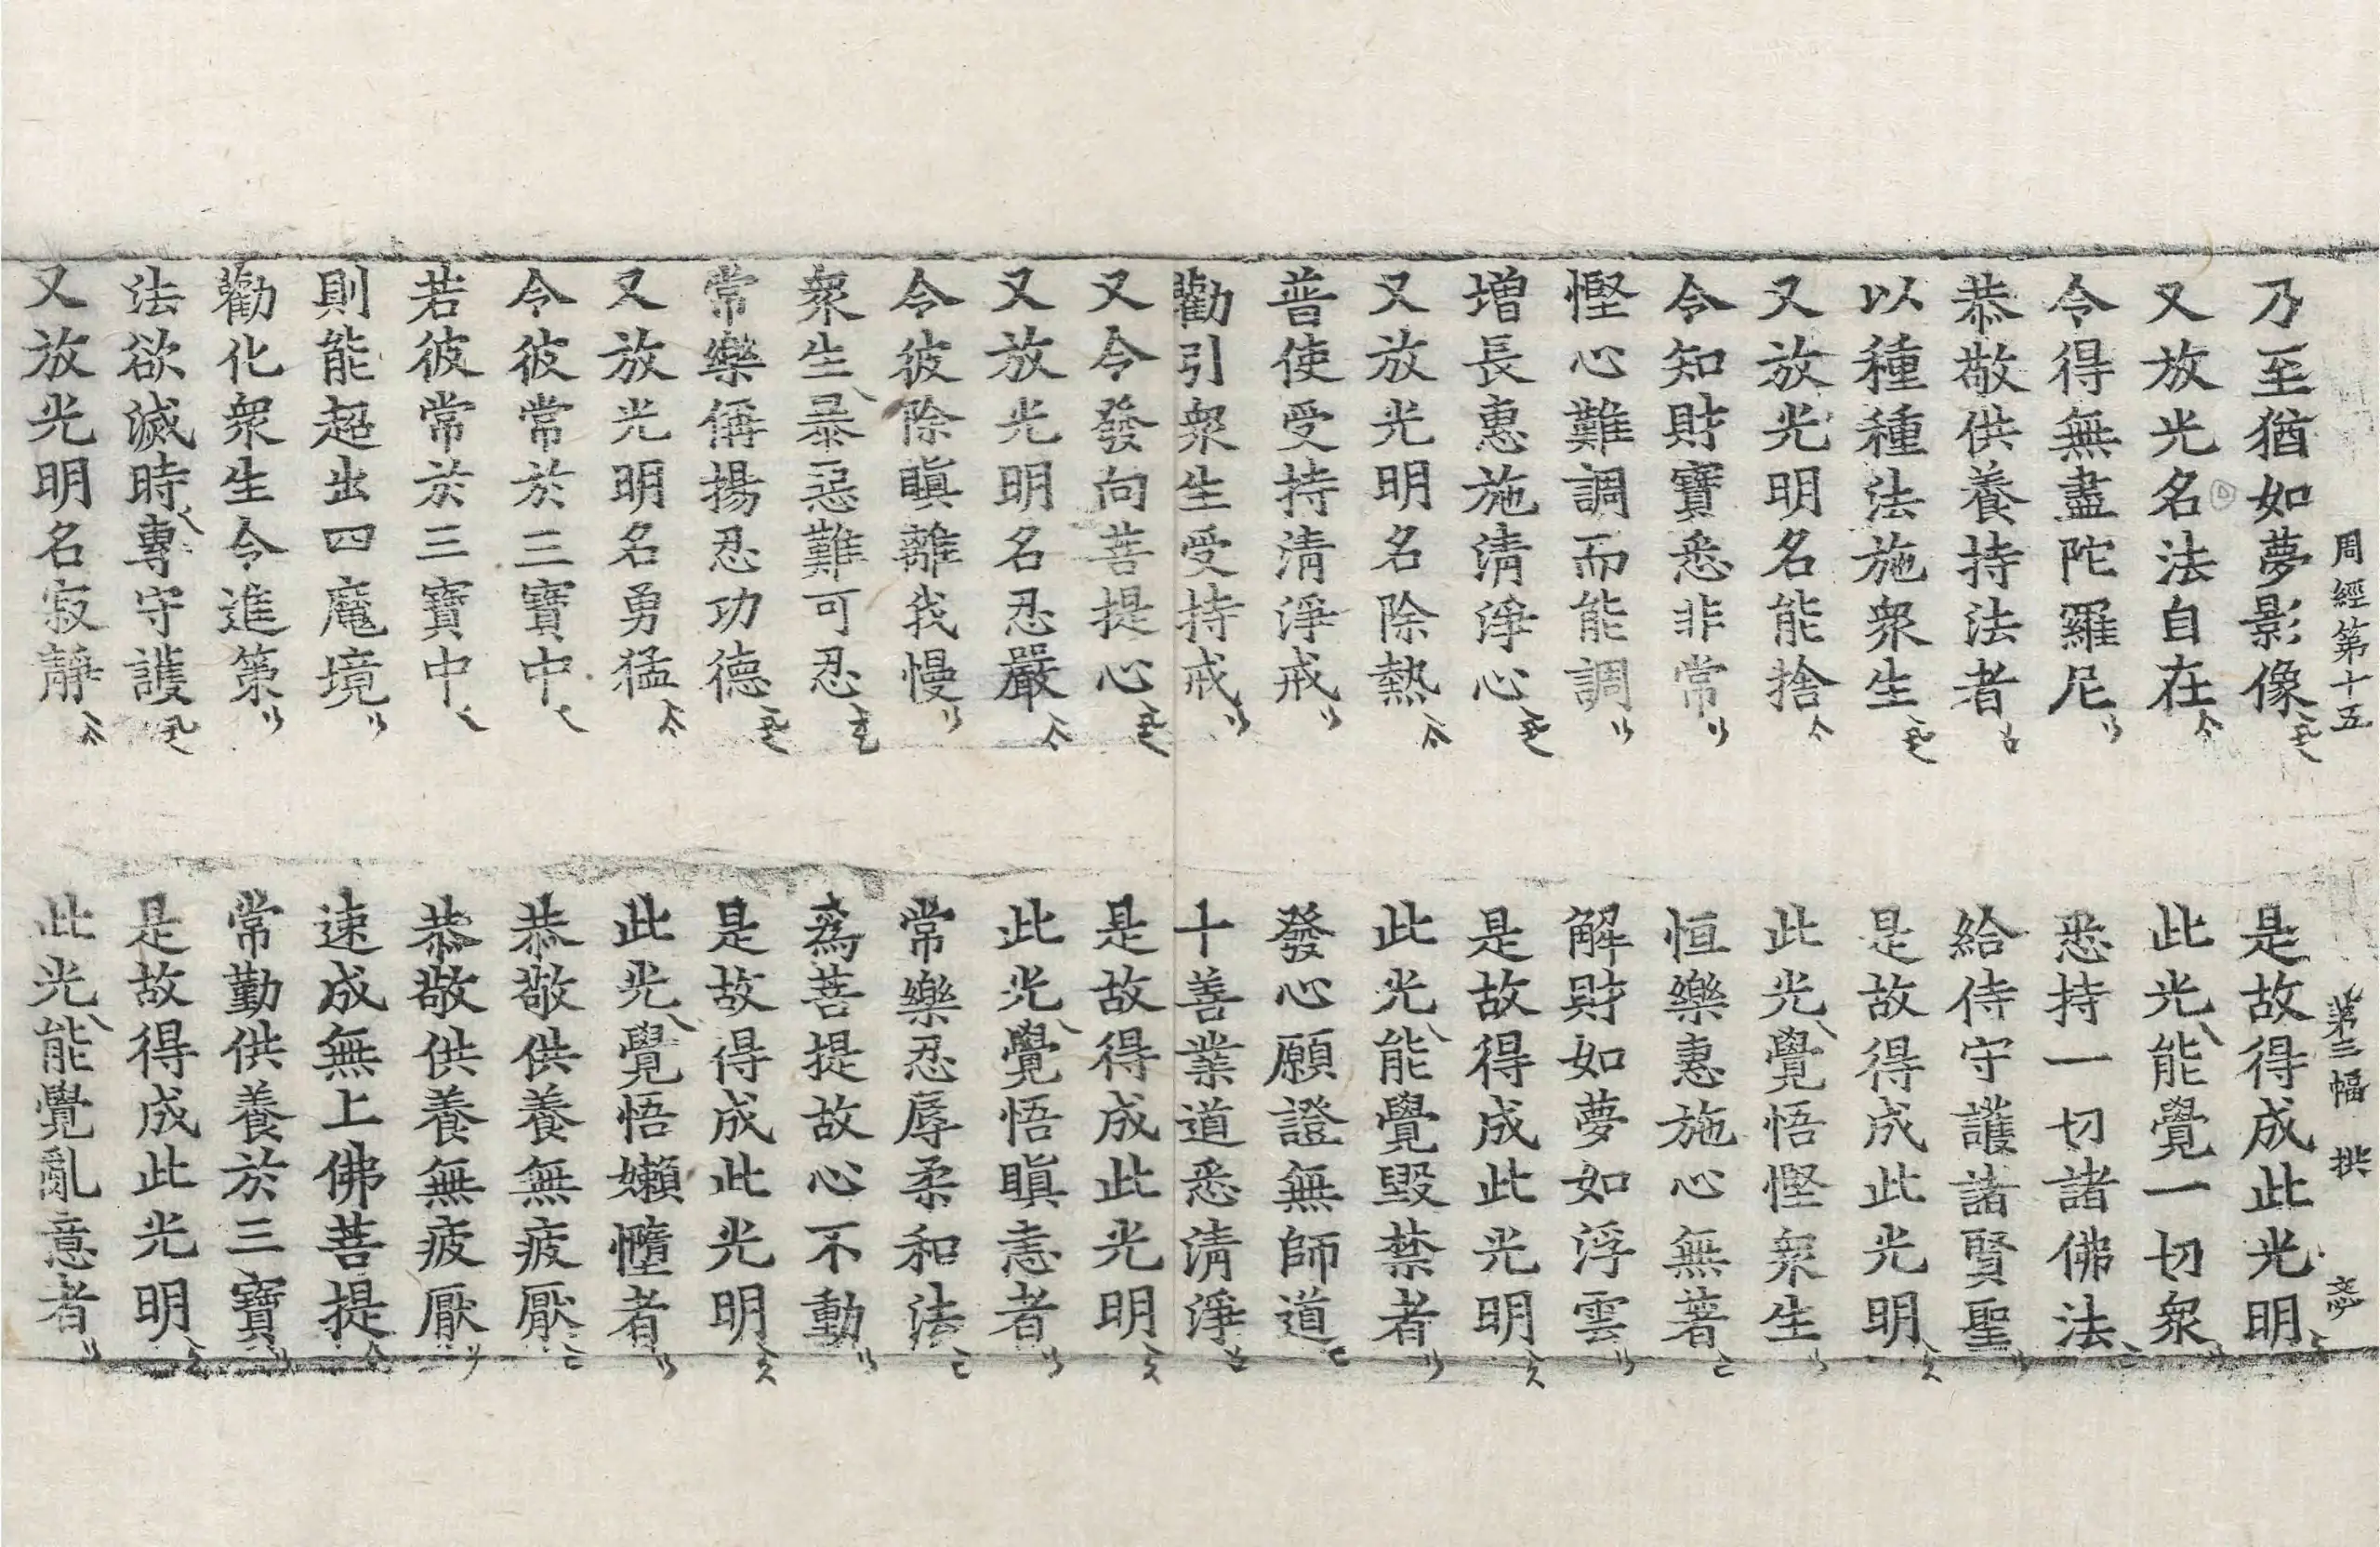 周經第十五 第三幅
乃至猶如夢影像 是故得成此光明
又放光名法自在 此光能覺一切衆
令得無盡陀羅尼 悉持一切諸佛法
恭敬供養持法者 給侍守護諸賢聖
以種種法施衆生 是故得成此光明
又放光明名能捨 此光覺悟慳衆生
令知財寶悉非常 恒樂惠施心無著
慳心難調而能調 解財如夢如浮雲
增長惠施清淨心 是故得成此光明
又放光明名除熱 此光能覺毀禁者
普使受持清淨戒 發心願證無師道
勸引衆生受持戒 十善業道悉清淨
又令發向菩提心 是故得成此光明
又放光明名忍嚴 此光覺悟瞋恚者
令彼除瞋離我慢 常樂忍辱柔和法
衆生暴惡難可忍 爲菩提故心不動
常樂偁揚忍功德 是故得成此光明
又放光明名勇猛 此光覺悟嬾憜者
令彼常於三寶中 恭敬供養無疲厭
若彼常於三寶中 恭敬供養無疲厭
則能超出四魔境 速成無上佛菩提
勸化衆生令進策 常勤供養於三寶
法欲滅時專守護 是故得成此光明
又放光明名寂靜 此光能覺亂意者